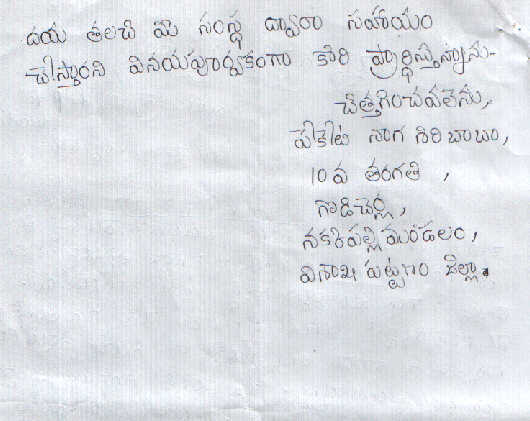 దయ తలచి మీ సంస్థ ద్వారా సహాయం
చేస్తారని వినయపూర్వకంగా కోరి ప్రార్థిస్తున్నాను-
చిత్తగించవలెను,
పేకేటి నాగ గిరి బాబు,
10వ తరగతి ,
గొడిచెర్ల,
నక్కపల్లి మండలం,
విశాఖ పట్టణం జిల్లా.